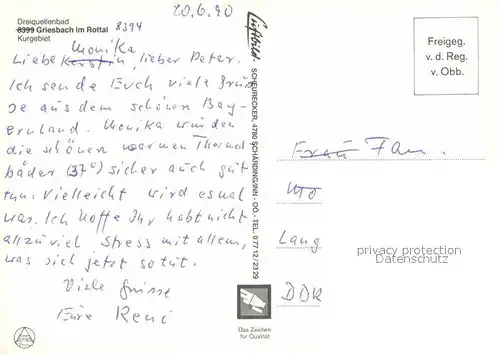 20.6.90
Dreiquellenbad
8399 Griesbach im Rottal 8394
Kurgebiet
Monika
Liebe Kerstin, lieber Peter.
Ich sende Euch viele Grüs
se aus dem schönen Bay-
ernland. Monika würden
die schönen warmen Thermal
bäder (37°) sicher auch gut
tun. Vielleicht wird es mal
was. Ich hoffe Ihr habt nicht
allzuviel Stress mit allem,
was sich jetzt so tut.
Viele Grüsse
Eure Reni
Luftbild-
SCHEURECKER, 4780 SCHÄRDING/INN - OÖ. - TEL. 0 77 12 / 23 29
Das Zeichen
für Qualität
Freigeg.
v. d. Reg.
v. Obb.
Frau Fam.
Mo
Lang
DDR
privacy protection
Datenschutz